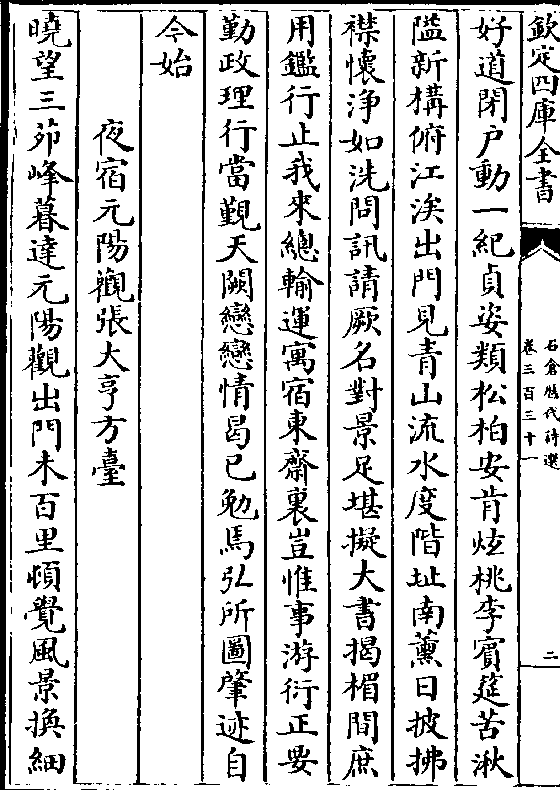 欽定四庫全書
石倉歷代詩選
卷三百三十一
二
好道閉户動一紀貞姿類松柏安肯炫桃李賓筵苦湫
隘新構俯江涘出門見青山流水度階址南薰日披拂
襟懷浄如洗問訊請厥名對景足堪擬大書揭楣間庶
用鑑行止我來總輸運寓宿東齋裏豈惟事游衍正要
勤政理行當覲天闕戀戀情曷已勉焉弘所圖肇迹自
今始
夜宿元陽觀張大亨方臺
曉望三茆峰暮達元陽觀出門未百里頓覺風景換細